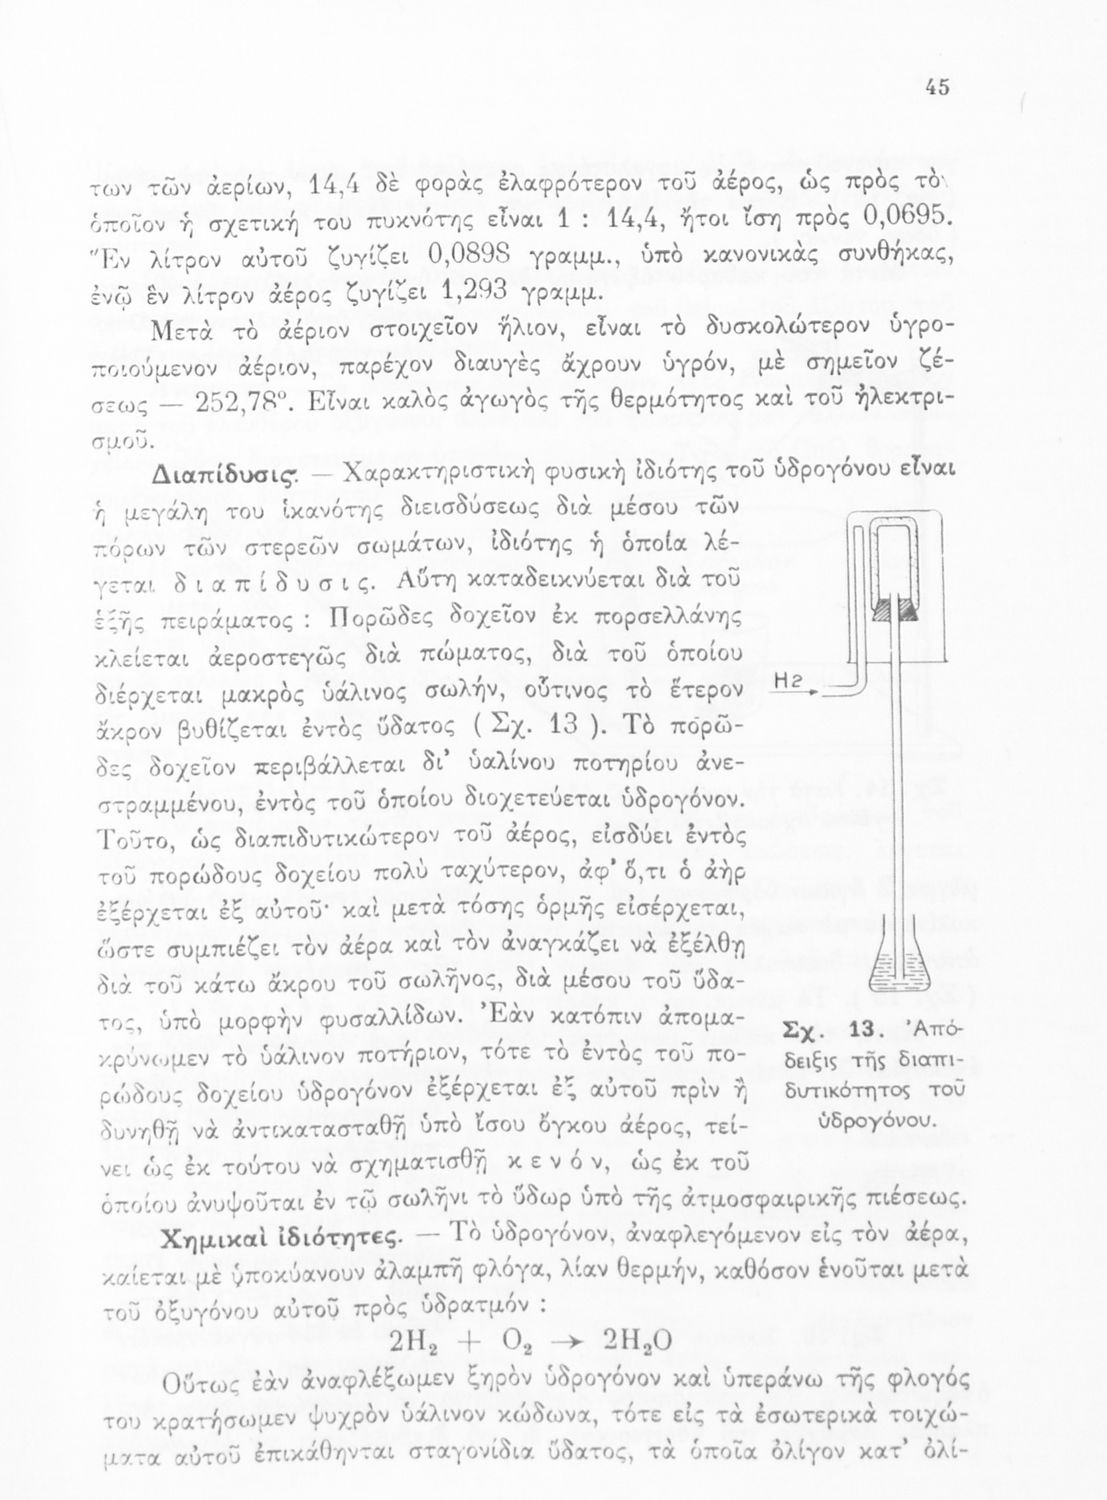 45
των τῶν ἀερίων, 14,4 δὲ φορὰς ἐλαφρότερον τοῦ ἀέρος, ὡς πρὸς τὸ
ὁποῖον ἡ σχετική του πυκνότης εἶναι 1 : 14,4, ἤτοι ἴση πρὸς 0,0695.
Ἓν λίτρον αὐτοῦ ζυγίζει 0,0898 γραμμ., ὑπὸ κανονικὰς συνθήκας,
ἐνῷ ἓν λίτρον ἀέρος ζυγίζει 1,293 γραμμ.
Μετὰ τὸ ἀέριον στοιχεῖον ἥλιον, εἶναι τὸ δυσκολώτερον ὑγρο-
ποιούμενον ἀέριον, παρέχον διαυγὲς ἄχρουν ὑγρόν, μὲ σημεῖον ζέ-
σεως — 252,78°. Εἶναι καλὸς ἀγωγὸς τῆς θερμότητος καὶ τοῦ ἠλεκτρι-
σμοῦ.
Διαπίδυσις. — Χαρακτηριστικὴ φυσικὴ ἰδιότης τοῦ ὑδρογόνου εἶναι
ἡ μεγάλη του ἱκανότης διεισδύσεως διὰ μέσου τῶν
πόρων τῶν στερεῶν σωμάτων, ἰδιότης ἡ ὁποία λέ-
γεται δ ι α π ί δ υ σ ι ς. Αὕτη καταδεικνύεται διὰ τοῦ
ἑξῆς πειράματος : Πορῶδες δοχεῖον ἐκ πορσελλάνης
κλείεται ἀεροστεγῶς διὰ πώματος, διὰ τοῦ ὁποίου
διέρχεται μακρὸς ὑάλινος σωλήν, οὗτινος τὸ ἕτερον
ἄκρον βυθίζεται ἐντὸς ὕδατος ( Σχ. 13 ). Τὸ πορῶ-
δες δοχεῖον περιβάλλεται δι' ὑαλίνου ποτηρίου ἀνε-
στραμμένου, ἐντὸς τοῦ ὁποίου διοχετεύεται ὑδρογόνον.
Τοῦτο, ὡς διαπιδυτικώτερον τοῦ ἀέρος, εἰσδύει ἐντὸς
τοῦ πορώδους δοχείου πολὺ ταχύτερον, ἀφ' ὅ,τι ὁ ἀὴρ
ἐξέρχεται ἐξ αὐτοῦ· καὶ μετὰ τόσης ὁρμῆς εἰσέρχεται,
ὥστε συμπιέζει τὸν ἀέρα καὶ τὸν ἀναγκάζει νὰ ἐξέλθῃ
διὰ τοῦ κάτω ἄκρου τοῦ σωλῆνος, διὰ μέσου τοῦ ὕδα-
τος, ὑπὸ μορφὴν φυσαλλίδων. Ἐὰν κατόπιν ἀπομα-
κρύνωμεν τὸ ὑάλινον ποτήριον, τότε τὸ ἐντὸς τοῦ πο-
ρώδους δοχείου ὑδρογόνον ἐξέρχεται ἐξ αὐτοῦ πρὶν ἢ
δυνηθῇ νὰ ἀντικατασταθῇ ὑπὸ ἴσου ὄγκου ἀέρος, τεί-
νει ὡς ἐκ τούτου νὰ σχηματισθῇ κ ε ν ό ν, ὡς ἐκ τοῦ
ὁποίου ἀνυψοῦται ἐν τῷ σωλῆνι τὸ ὕδωρ ὑπὸ τῆς ἀτμοσφαιρικῆς πιέσεως.
H2
Σχ. 13. Ἀπό-
δειξις τῆς διαπι-
δυτικότητος τοῦ
ὑδρογόνου.
Χημικαὶ ἰδιότητες. — Τὸ ὑδρογόνον, ἀναφλεγόμενον εἰς τὸν ἀέρα,
καίεται μὲ ὑποκύανουν ἀλαμπῆ φλόγα, λίαν θερμήν, καθόσον ἑνοῦται μετὰ
τοῦ ὀξυγόνου αὐτοῦ πρὸς ὑδρατμόν :
2H₂ + O₂ → 2H₂O
Οὕτως ἐὰν ἀναφλέξωμεν ξηρὸν ὑδρογόνον καὶ ὑπεράνω τῆς φλογός
του κρατήσωμεν ψυχρὸν ὑάλινον κώδωνα, τότε εἰς τὰ ἐσωτερικὰ τοιχώ-
ματα αὐτοῦ ἐπικάθηνται σταγονίδια ὕδατος, τὰ ὁποῖα ὀλίγον κατ' ὀλί-